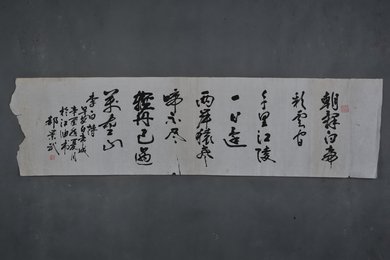 朝辞白帝
彩云间
千里江陵
一日还
两岸猿声
啼不尽
轻舟已过
万重山
李白诗
早发白帝城